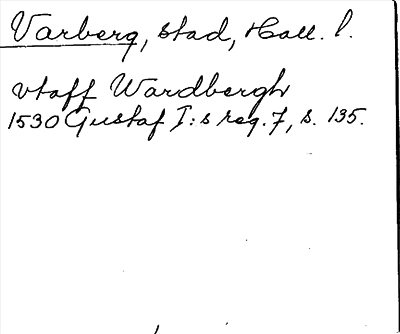 Varberg, stad, Hall. l.
vtaff Wardbergh
1530 Gustaf I:s reg. 7, s. 135.